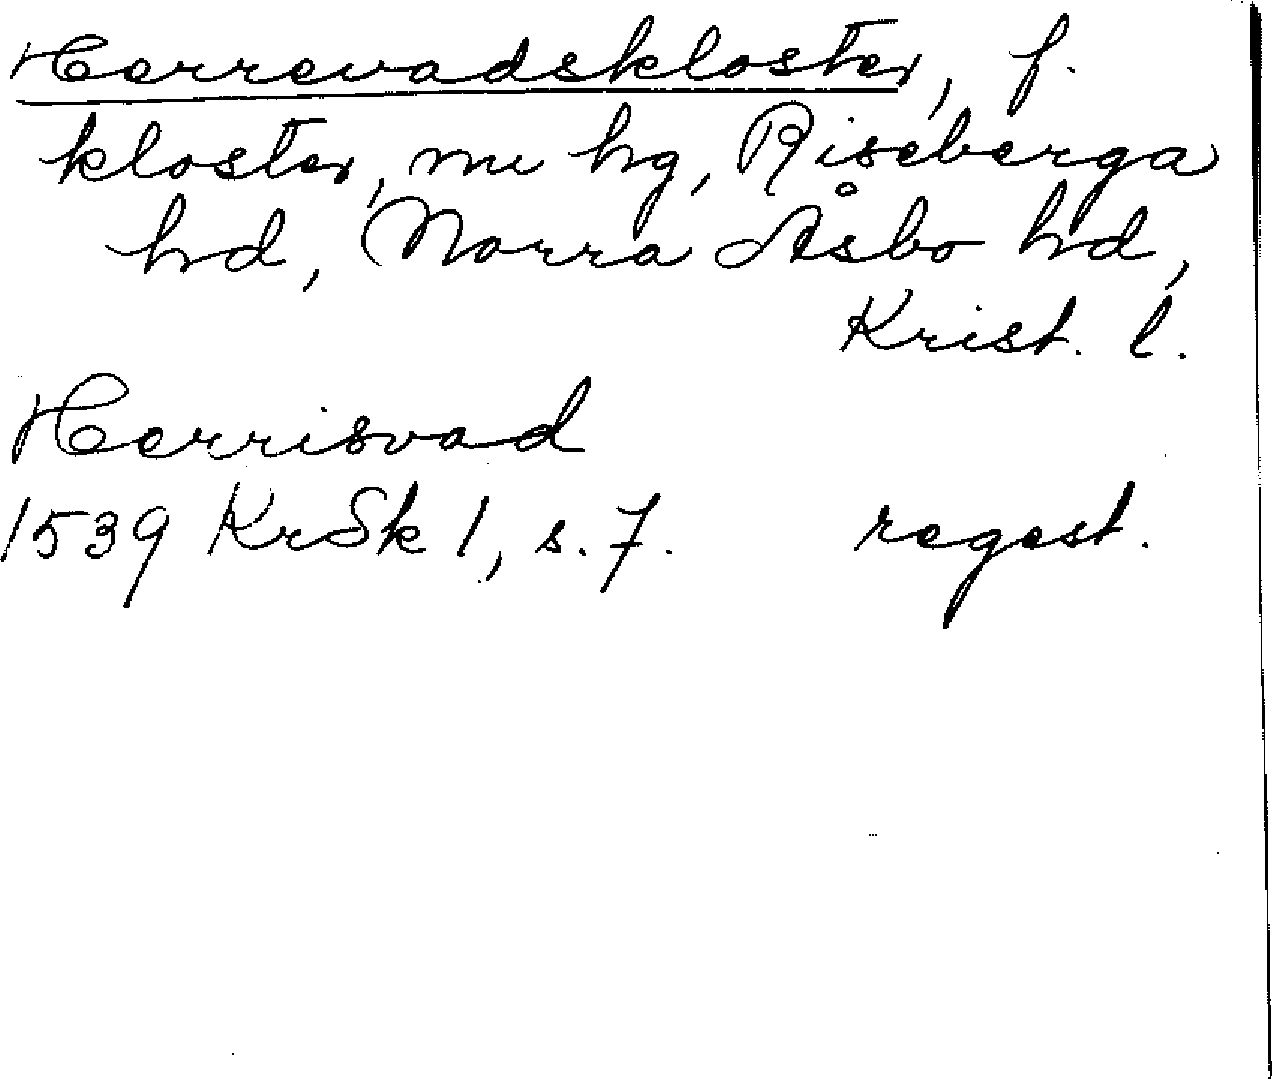 Herrevadskloster, f.
kloster, nu hg, Riseberga
hd, Norra Åsbo hd,
Krist. l.
Herrisvad
1539 KrSk 1, s. 7. regest.